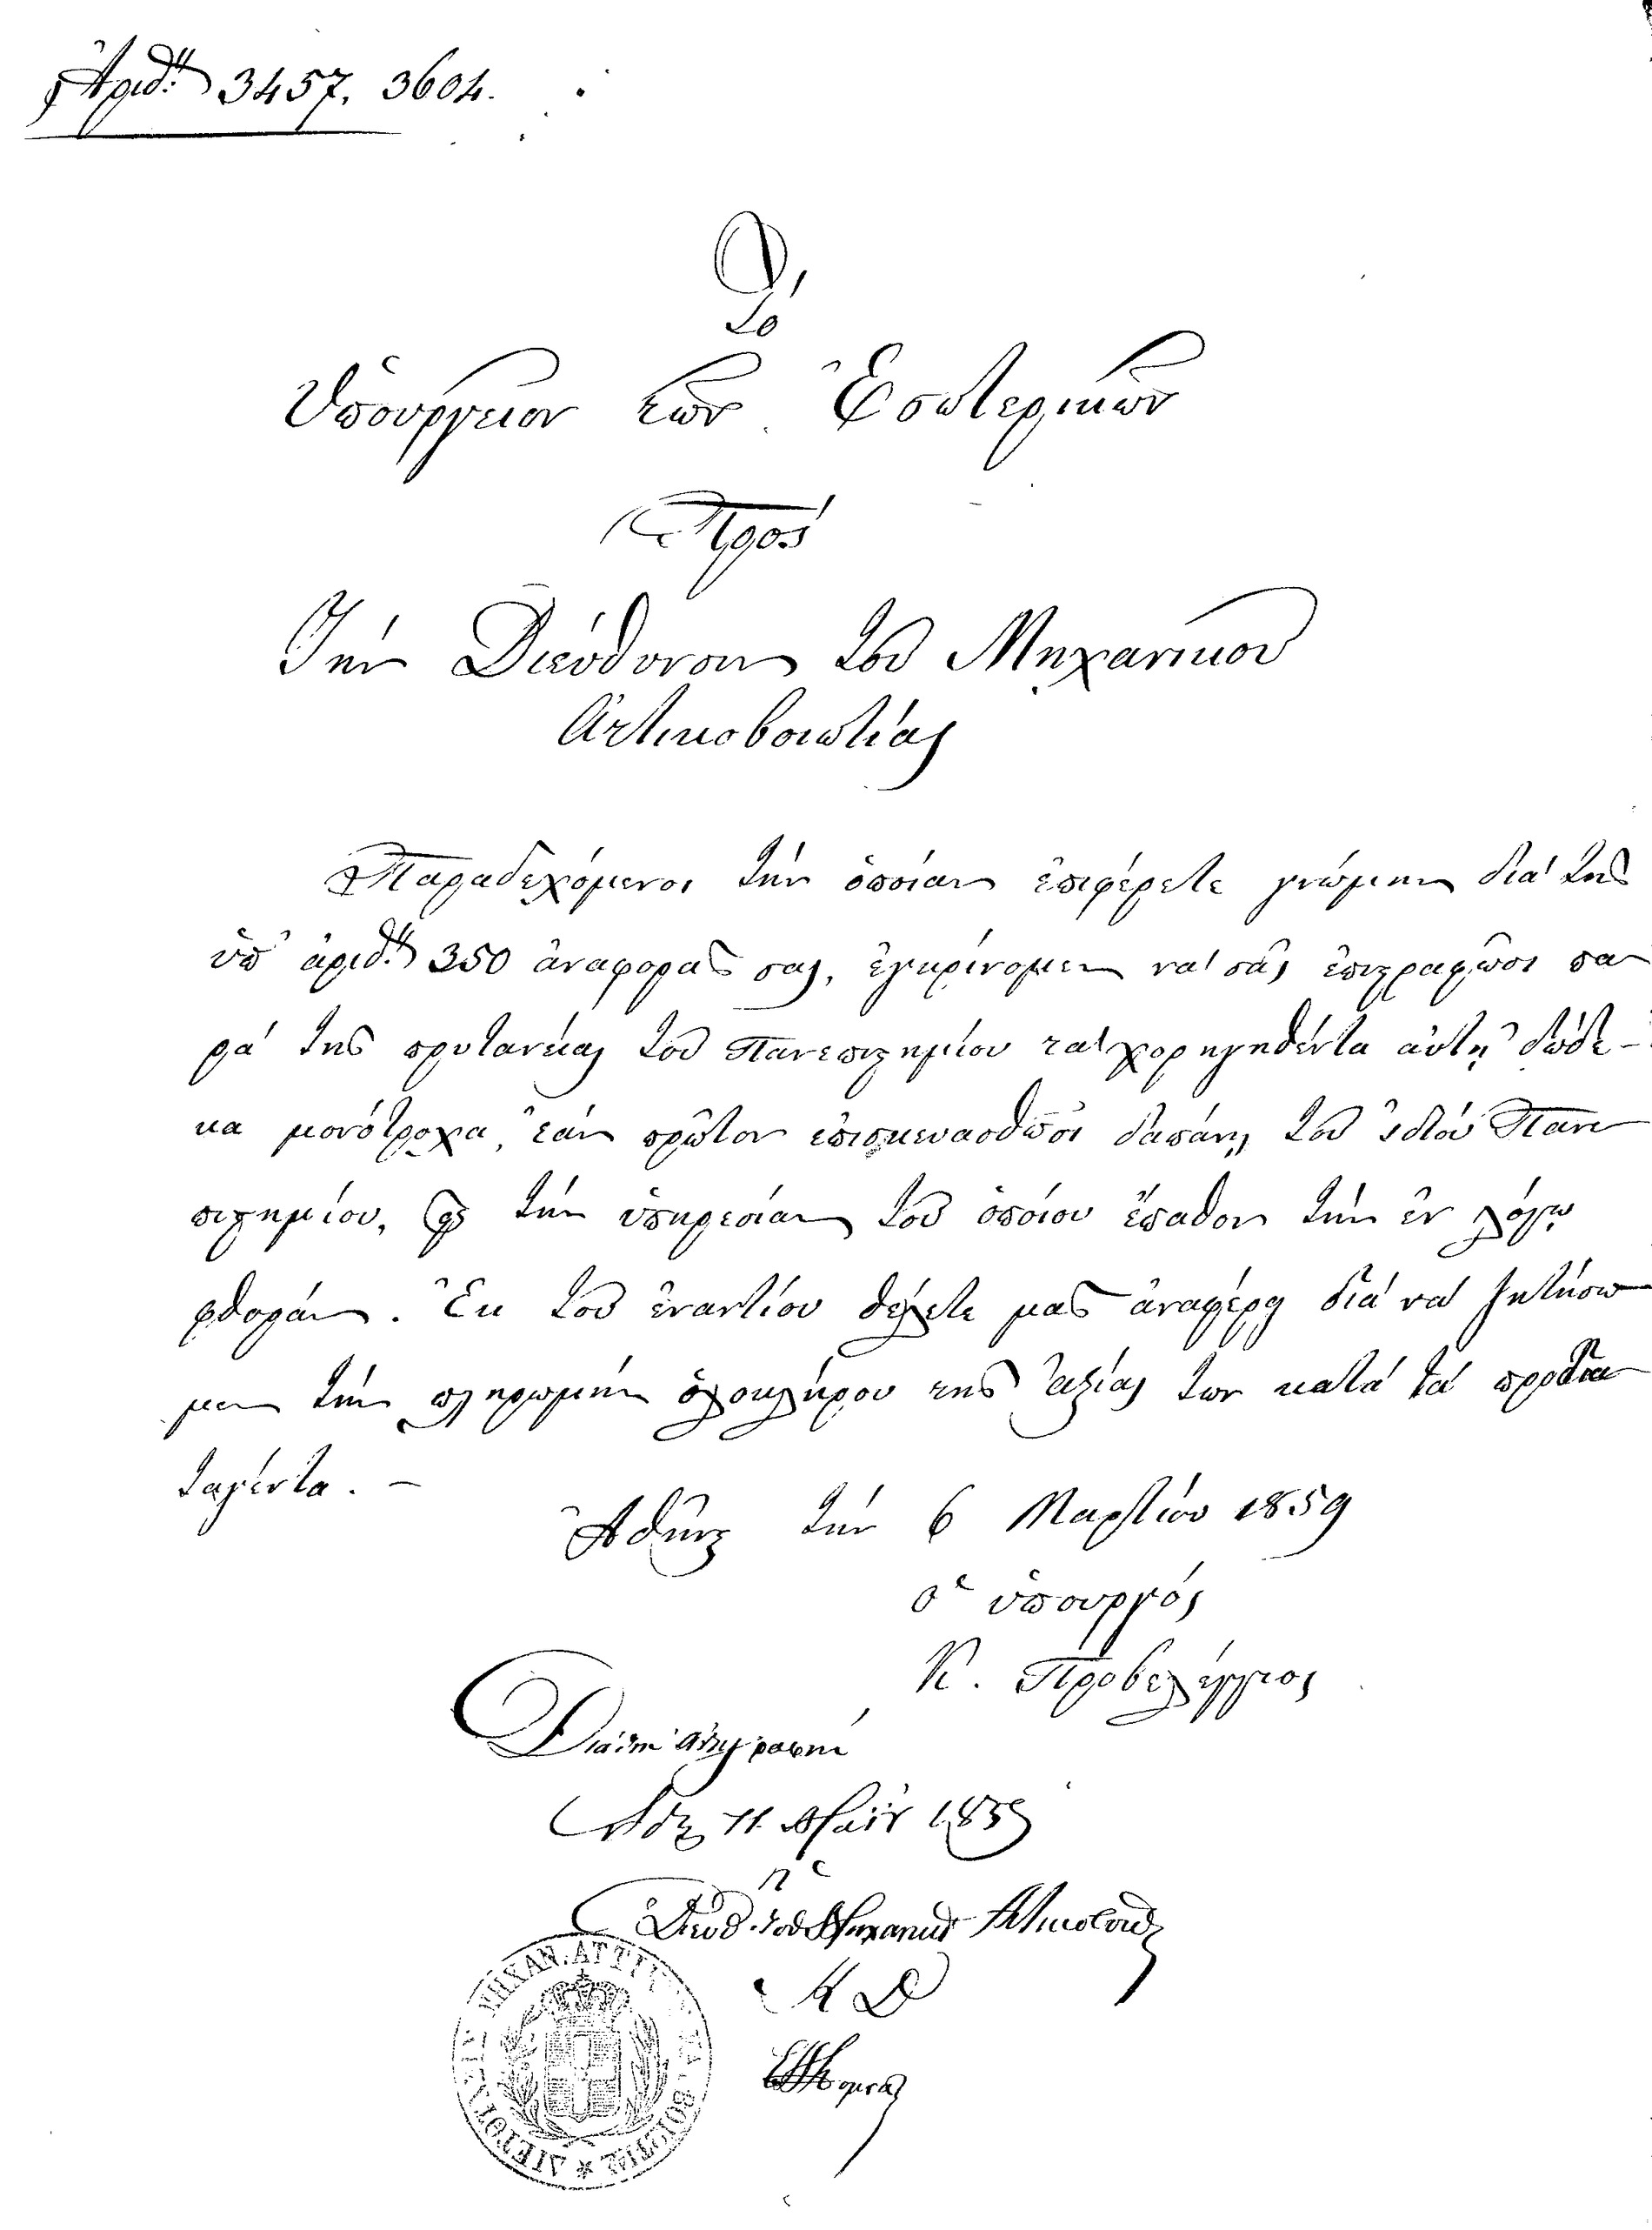 Ἀριθ. 3457. 3604.
Τὸ
Ὑπουργεῖον τῶν Ἐσωτερικῶν
Πρὸς
Τὴν Διεύθυνσιν τοῦ Μηχανικοῦ
Ἀττικοβοιωτίας
Παραδεχόμενοι τὴν ὁποίαν ἐπιφέρετε γνώμην διὰ τῆς
ὑπ' ἀριθ. 350 ἀναφορᾶς σας, ἐγκρίνομεν νὰ σᾶς ἐπιστραφῶσι πα
ρὰ τῆς πρυτανείας τοῦ Πανεπιστημίου τὰ χορηγηθέντα αὐτῇ δώδε-
κα μονότροχα, ἐὰν πρῶτον ἐπισκευασθῶσι δαπάνῃ τοῦ ἰδίου Πανε
πιστημίου, εἰς τὴν ὑπηρεσίαν τοῦ ὁποίου ἔπαθον τὴν ἐν λόγῳ
φθοράν. Ἐκ τοῦ ἐναντίου θέλετε μᾶς ἀναφέρῃ διὰ νὰ ζητήσω
μεν τὴν πληρωμὴν ὁλοκλήρου τῆς ἀξίας των κατὰ τὰ προδια
ταχθέντα. –
Ἀθήνῃ τὴν 6 Μαρτίου 1859
Ὁ ὑπουργός
Κ. Προβελέγγιος
Διὰ τὴν ἀντιγραφήν
Ἀθ 11 Μαΐου 1859
Ἡ
Διευθ. τοῦ Μηχανικοῦ Ἀττικοβοιωτ
ΜΗΧΑΝ. ΑΤΤΙ
ΒΟΙΩΤΙΑΣ * ΔΙΕΥΘΥ